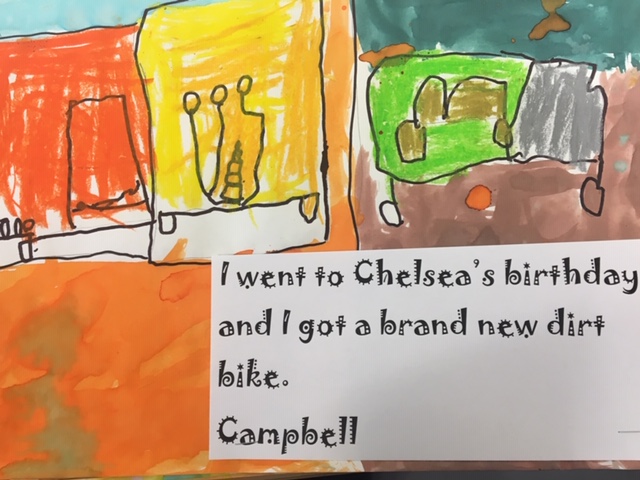 I went to Chelsea's birthday
and I got a brand new dirt
bike.
Campbell